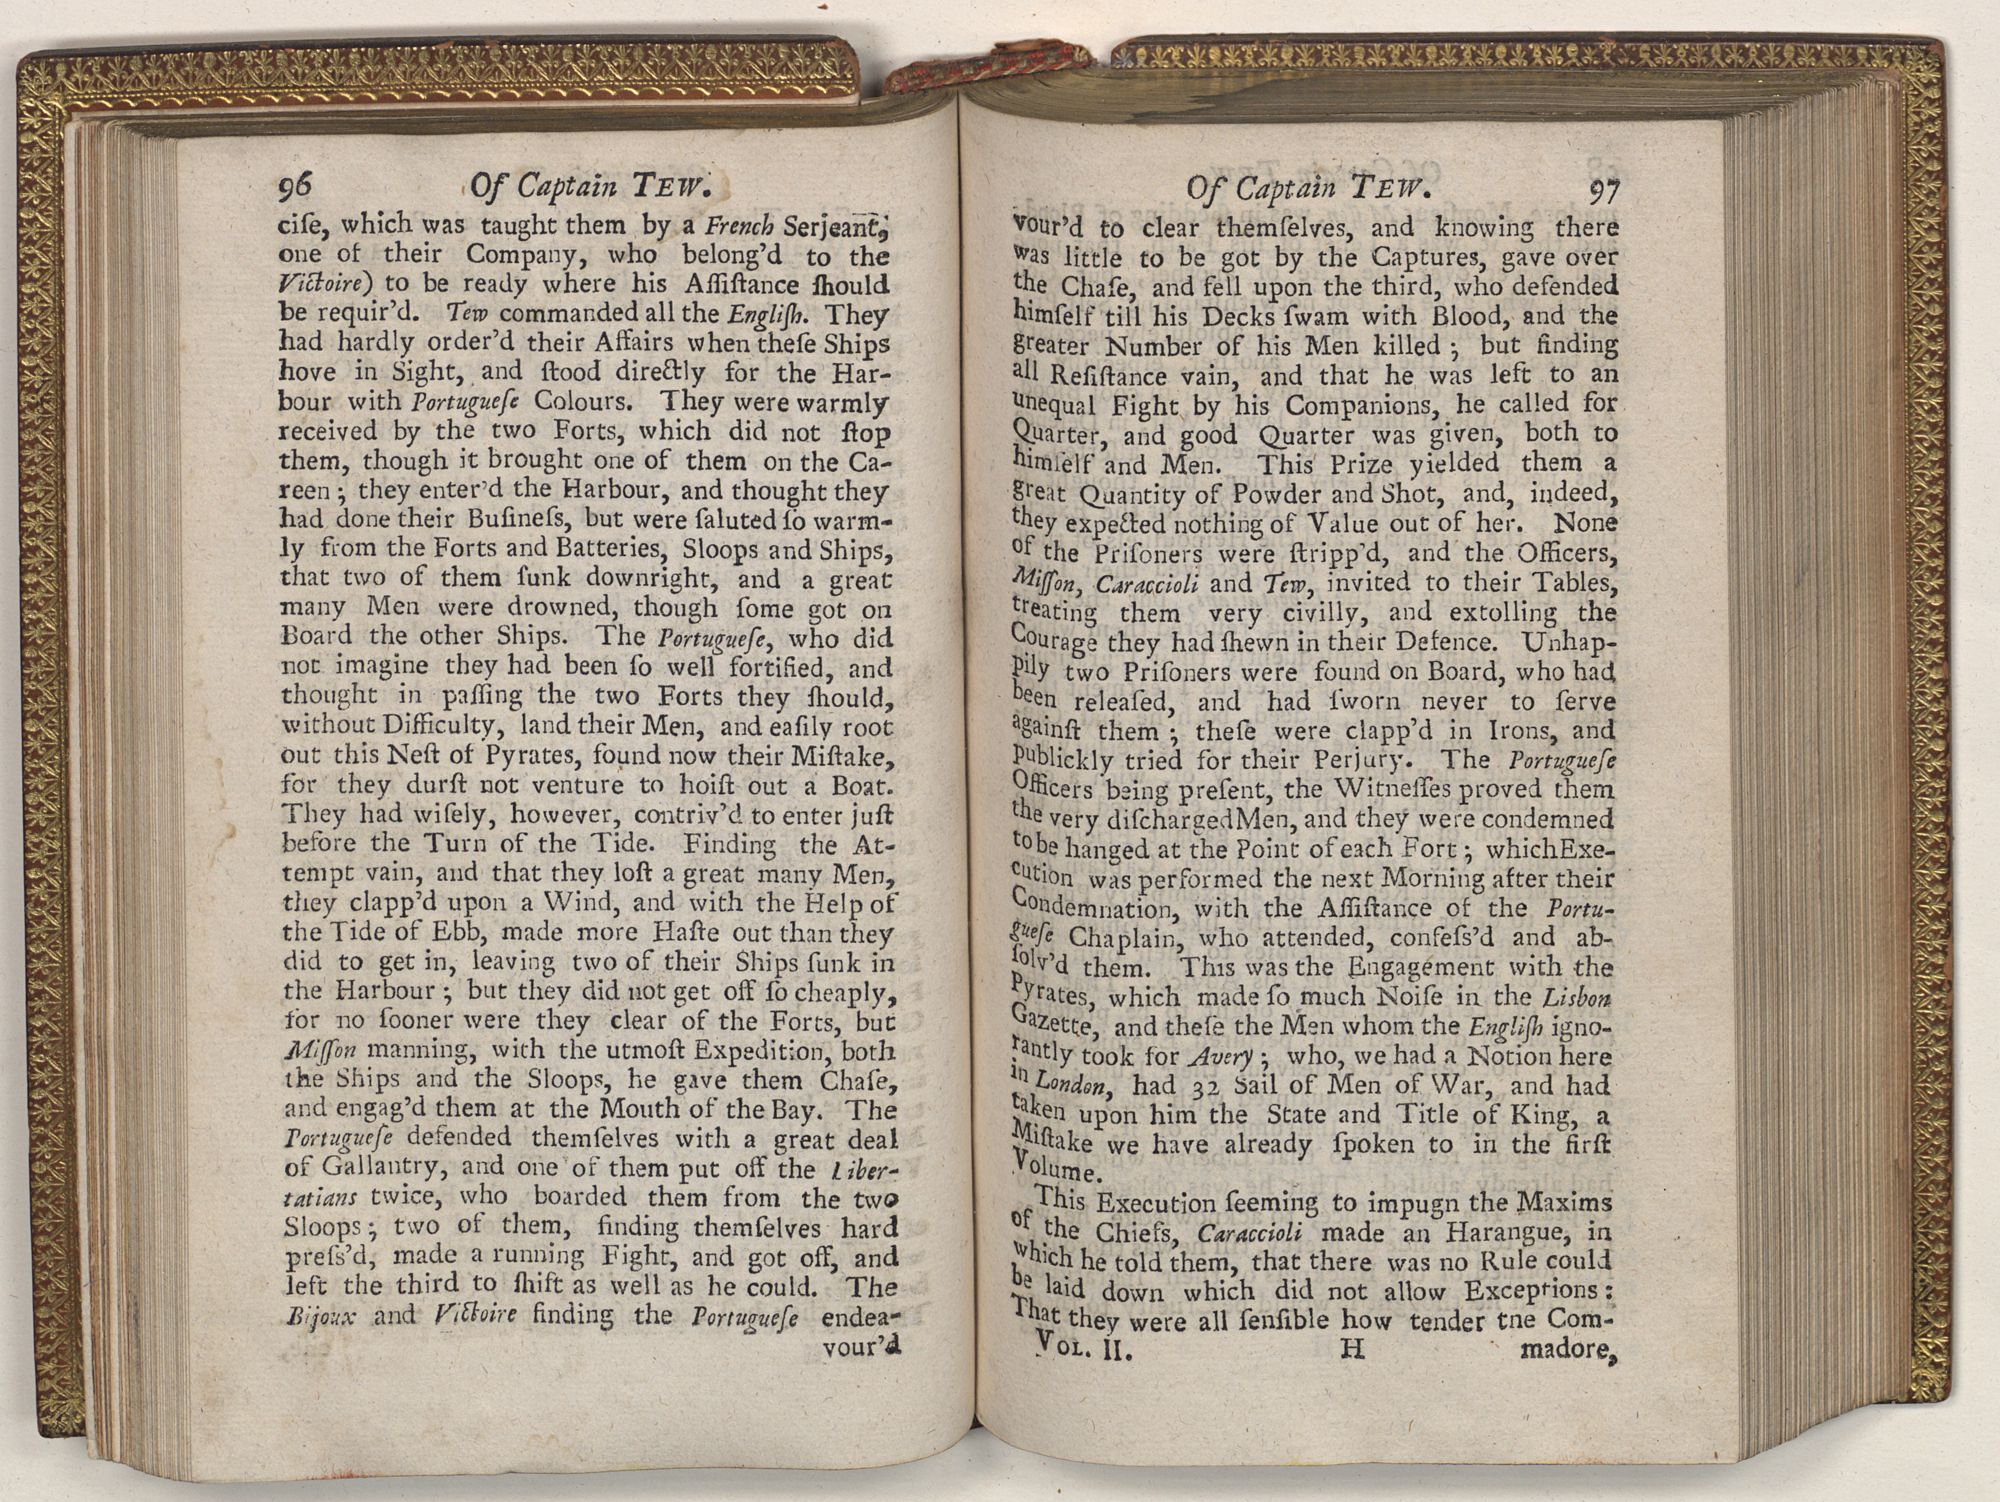 96 Of Captain TEW.
ciſe, which was taught them by a French Serjeant,
one of their Company, who belong'd to the
Victoire) to be ready where his Aſſiſtance ſhould
be requir'd. Tew commanded all the Engliſh. They
had hardly order'd their Affairs when theſe Ships
hove in Sight, and ſtood directly for the Har-
bour with Portugueſe Colours. They were warmly
received by the two Forts, which did not ſtop
them, though it brought one of them on the Ca-
reen; they enter'd the Harbour, and thought they
had done their Buſineſs, but were ſaluted ſo warm-
ly from the Forts and Batteries, Sloops and Ships,
that two of them ſunk downright, and a great
many Men were drowned, though ſome got on
Board the other Ships. The Portugueſe, who did
not imagine they had been ſo well fortified, and
thought in paſſing the two Forts they ſhould,
without Difficulty, land their Men, and eaſily root
out this Neſt of Pyrates, found now their Miſtake,
for they durſt not venture to hoiſt out a Boat.
They had wiſely, however, contriv'd to enter juſt
before the Turn of the Tide. Finding the At-
tempt vain, and that they loſt a great many Men,
they clapp'd upon a Wind, and with the Help of
the Tide of Ebb, made more Haſte out than they
did to get in, leaving two of their Ships ſunk in
the Harbour; but they did not get off ſo cheaply,
for no ſooner were they clear of the Forts, but
Miſſon manning, with the utmoſt Expedition, both
the Ships and the Sloops, he gave them Chaſe,
and engag'd them at the Mouth of the Bay. The
Portugueſe defended themſelves with a great deal
of Gallantry, and one of them put off the Liber-
tatians twice, who boarded them from the two
Sloops; two of them, finding themſelves hard
preſs'd, made a running Fight, and got off, and
left the third to ſhift as well as he could. The
Bijoux and Victoire finding the Portugueſe endea-
vour'd
Of Captain TEW. 97
vour'd to clear themſelves, and knowing there
was little to be got by the Captures, gave over
the Chaſe, and fell upon the third, who defended
himſelf till his Decks ſwam with Blood, and the
greater Number of his Men killed; but finding
all Reſiſtance vain, and that he was left to an
unequal Fight by his Companions, he called for
Quarter, and good Quarter was given, both to
himſelf and Men. This Prize yielded them a
great Quantity of Powder and Shot, and, indeed,
they expected nothing of Value out of her. None
of the Priſoners were ſtripp'd, and the Officers,
Miſſon, Caraccioli and Tew, invited to their Tables,
treating them very civilly, and extolling the
Courage they had ſhewn in their Defence. Unhap-
pily two Priſoners were found on Board, who had
been releaſed, and had ſworn never to ſerve
againſt them; theſe were clapp'd in Irons, and
publickly tried for their Perjury. The Portugueſe
Officers being preſent, the Witneſſes proved them
the very diſcharged Men, and they were condemned
to be hanged at the Point of each Fort; which Exe-
cution was performed the next Morning after their
Condemnation, with the Aſſiſtance of the Portu-
gueſe Chaplain, who attended, confeſs'd and ab-
ſolv'd them. This was the Engagement with the
Pyrates, which made ſo much Noiſe in the Lisbon
Gazette, and theſe the Men whom the Engliſh igno-
rantly took for Avery; who, we had a Notion here
in London, had 32 Sail of Men of War, and had
taken upon him the State and Title of King, a
Miſtake we have already ſpoken to in the firſt
Volume.
This Execution ſeeming to impugn the Maxims
of the Chiefs, Caraccioli made an Harangue, in
which he told them, that there was no Rule could
be laid down which did not allow Exceptions:
That they were all ſenſible how tender tne Com-
VOL. II. H madore,